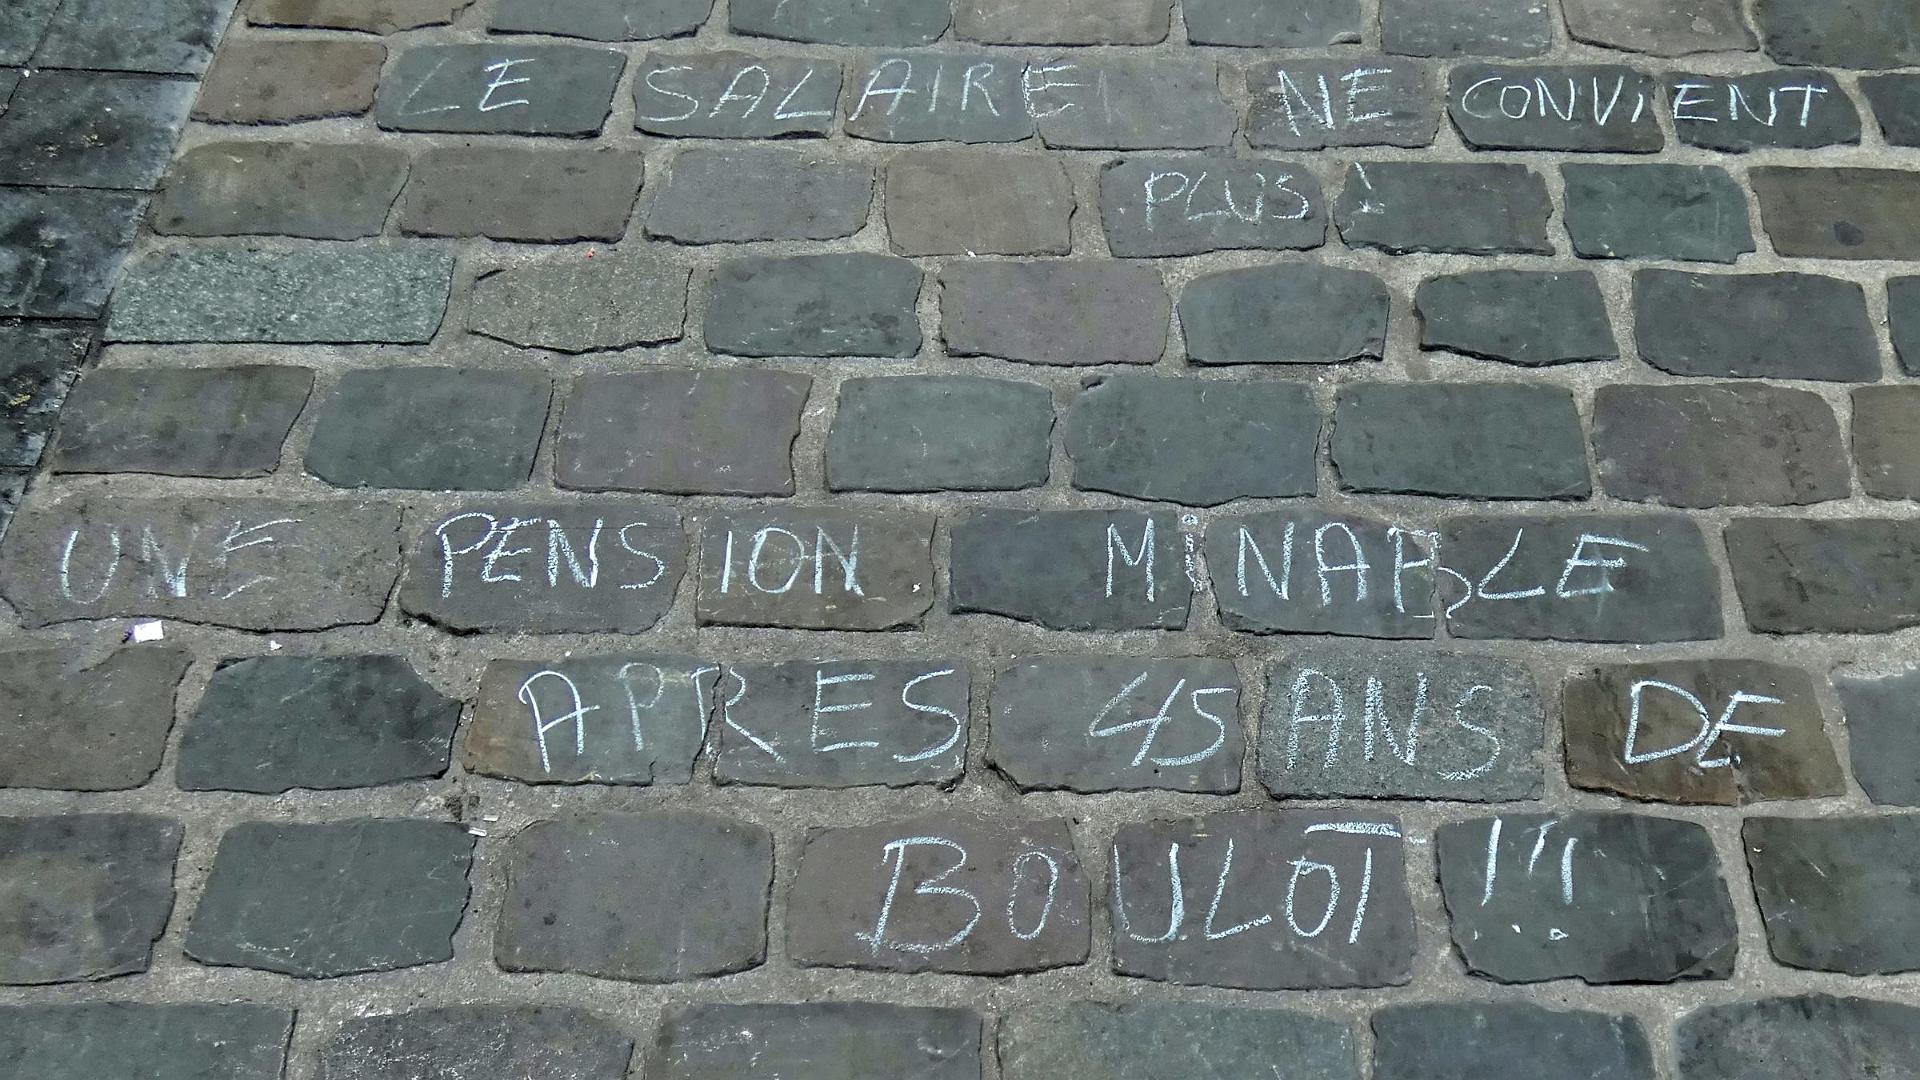 LE SALAIRE NE CONVIENT
PLUS !
UNE PENSION MINABLE
APRES 45 ANS DE
BOULOT !!!